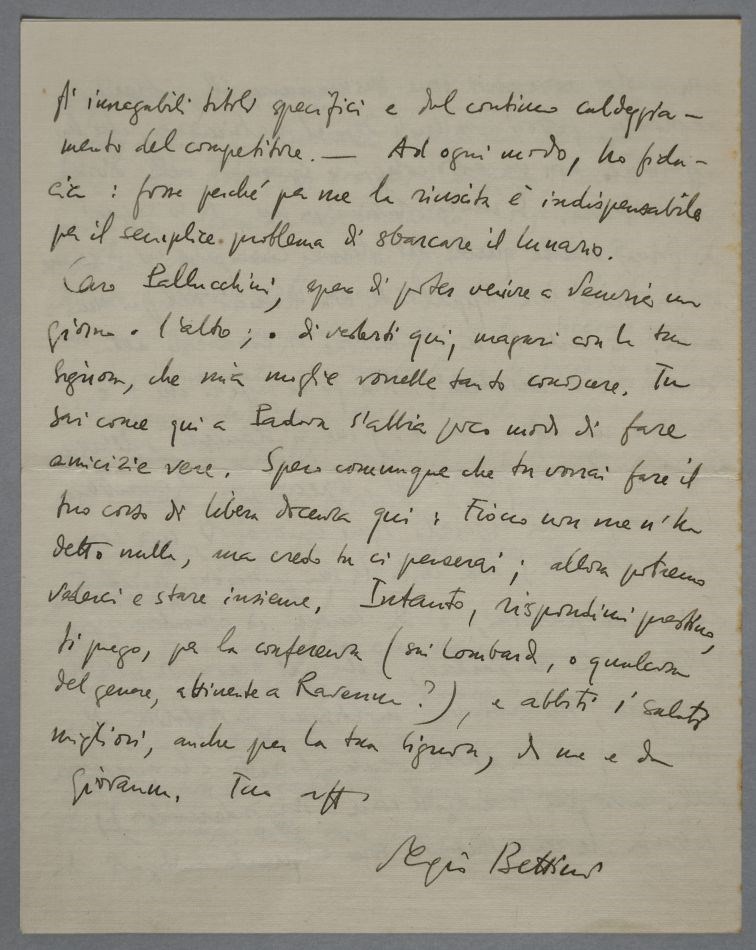 di innegabili titoli specifici e del continuo caldeggia-
mento del competitore. — Ad ogni modo, ho fidu-
cia : forse perché per me la riuscita è indispensabile
per il semplice problema di sbarcare il lunario.
Caro Pallucchini, spero di poter venire a Venezia un
giorno o l'altro ; o di vederti qui, magari con la tua
Signora, che mia moglie vorrebbe tanto conoscere. Tu
sai come qui a Padova s'abbia poco modo di fare
amicizie vere. Spero comunque che tu vorrai fare il
tuo corso di libera docenza qui : Fiocco non me n'ha
detto nulla, ma credo tu ci penserai ; allora potremo
vederci e stare insieme. Intanto, rispondimi prestino,
ti prego, per la conferenza (sui Lombardi, o qualcosa
del genere, attinente a Ravenna ?), e abbiti i saluti
migliori, anche per la tua Signora, di me e da
Giovanna. Tuo aff
Sergio Bettini